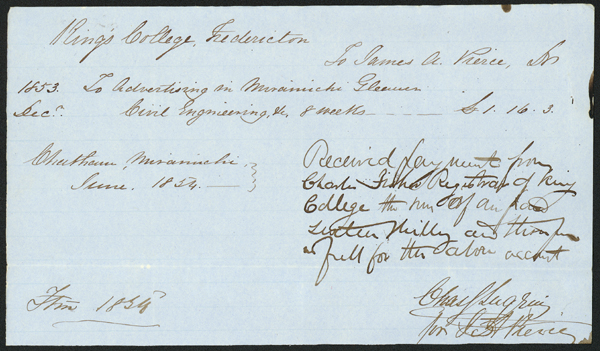 King's College, Fredericton
To James A. Pierce, Dr
1853. To Advertising in Miramichi Gleaner
Decr. Civil Engineering, &c, 8 weeks - - - - £1. 16. 3.
Chatham, Miramichi,
June. 1854. —
Received payment from
Charles Fisher Registrar of King
College the sum of one pound
Sixteen Shillgs and three pence
in full for the above account
Chas S Lugrin
for J A Pierce
1854